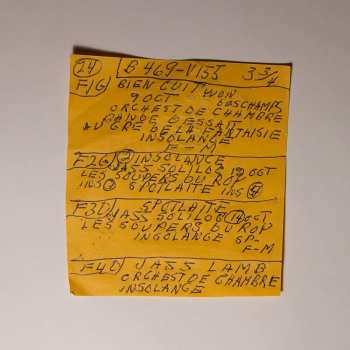 24 B 469-VISS 3 3/4
F1G BIEN CUIT WON
9 OCT DESCHAMPS
ORCHEST DE CHAMBRE
BANDE DESSAIT
AU GRE DE LA FANTAISIE
INSOLANGE
F-M
F2G INSOLANCE
JASS SOLILOQ 12 OCT
LES SOUPERS DU ROY
INS SPOTLAITE INS
F3D SPOTLAITE
JASS SOLILOQ 19 OCT
LES SOUPERS DU ROY
INSOLANGE SP-
F-M
F4D JASS LAMB
ORCHEST DE CHAMBRE
INSOLANGE